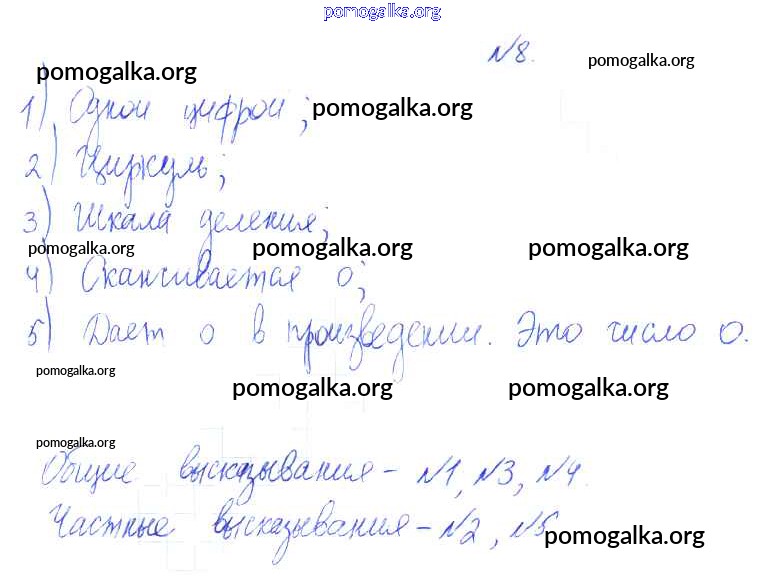 pomogalka.org
№8.
pomogalka.org pomogalka.org
1) Одной цифрой; pomogalka.org
2) Циркуль;
3) Шкала деления;
pomogalka.org pomogalka.org pomogalka.org
4) Оканчивается 0;
5) Дает 0 в произведении. Это число 0.
pomogalka.org
pomogalka.org pomogalka.org
pomogalka.org
Общие высказывания - №1, №3, №4.
Частные высказывания - №2, №5
pomogalka.org